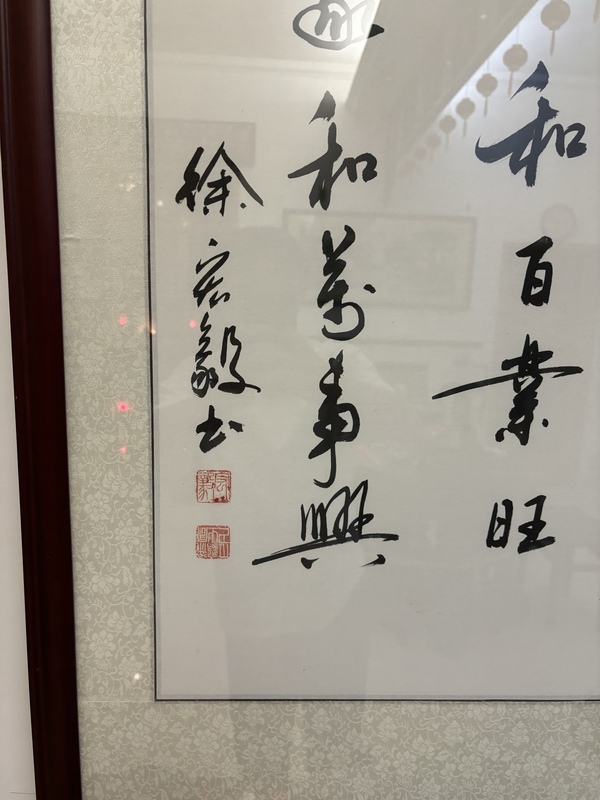 和百業旺
和萬事興
徐宏毅书